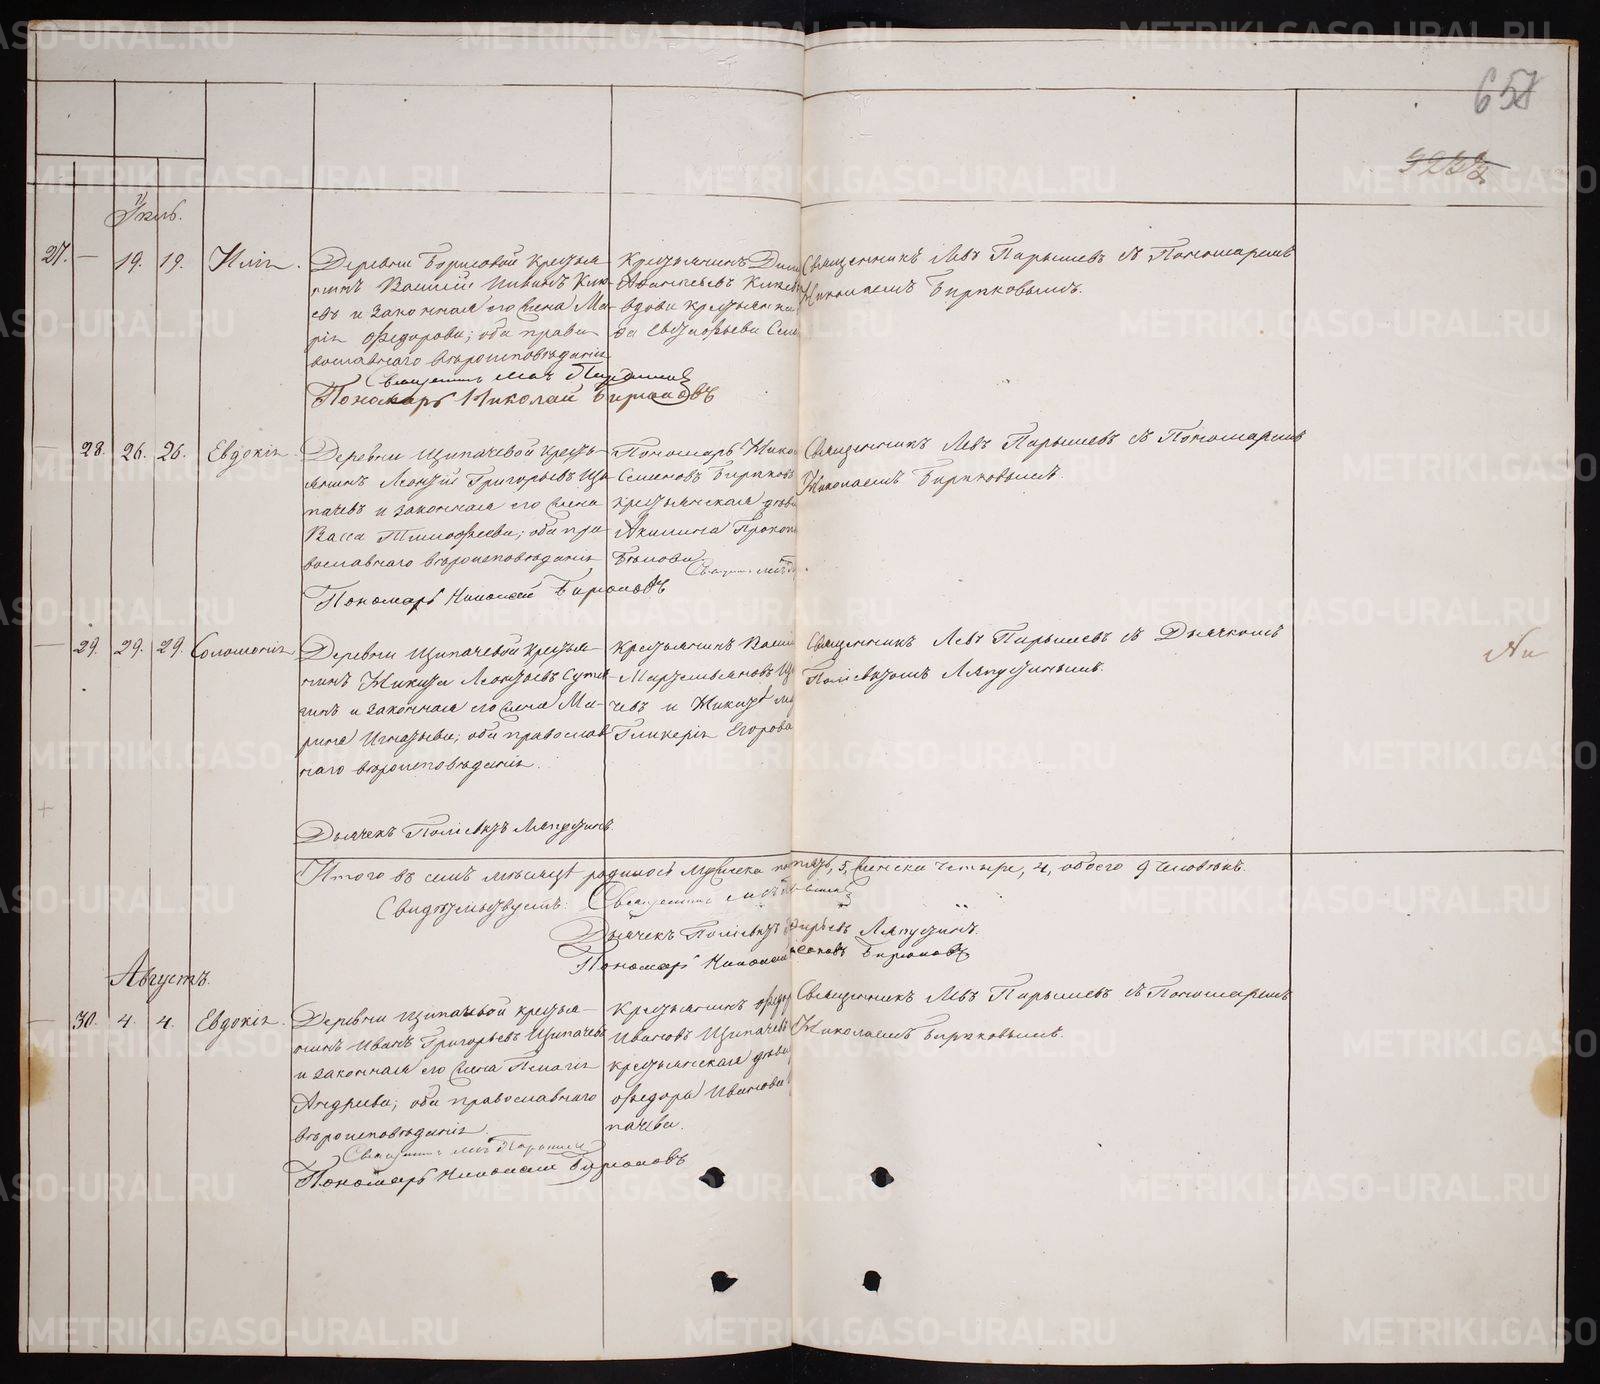 651
Іюль.
27. — 19. 19. Илія.
Деревни Борисовой крестья-
нинъ Василій Ивановъ
и законная его жена Ма-
рія Ѳедорова; оба право-
вославнаго вѣроисповѣданія
Крестьянинъ
вдова крестьянка
Священникъ Левъ Парышевъ съ Пономаремъ
Николаемъ Бирюковымъ.
Священникъ Левъ Парышевъ
Пономарь Николай Бирюковъ
— 28. 26. 26. Евдокія.
Деревни Щипачевой кресть-
янинъ Леонтій Григорьевъ Щи-
пачевъ и законная его жена
Васса Тимофеева; оба пра-
вославнаго вѣроисповѣданія
Пономарь Никол
Семеновъ Бирюковъ
крестьянская дѣви
Акилина Прокоп
Бѣлова
Священникъ Левъ
Священникъ Левъ Парышевъ съ Пономаремъ
Николаемъ Бирюковымъ.
Пономарь Николай Бирюковъ
— 29. 29. 29. Соломонія
Деревни Щипачевой крестья-
нинъ Никита Леонтьевъ
и законная его жена Ма-
рина Игнатьева; оба православ
наго вѣроисповѣданія.
Крестьянинъ Васи
чевъ и Никит
Гликерія Егорова
Священникъ Левъ Парышевъ съ Дьячкомъ
Поліевктомъ Ляпустинымъ.
Дьячекъ Поліевктъ Ляпустинъ.
Итого въ семъ мѣсяцѣ родилось мужеска пять, 5, женска четыре, 4, обоего 9 человѣкъ.
Свидѣтельствуютъ: Священникъ Левъ Парышевъ
Дьячекъ Поліевктъ Ляпустинъ.
Пономарь Николай Бирюковъ
Августъ.
— 30. 4. 4. Евдокія.
Деревни Щипачевой крестья-
нинъ Иванъ Григорьевъ Щипачевъ
и законная его жена Пелагія
Андреева; оба православнаго
вѣроисповѣданія.
Крестьянинъ Ѳедор
Ивановъ Щипачевъ
крестьянская дѣви
Ѳедора Иванова
пачева.
Священникъ Левъ Парышевъ съ Пономаремъ
Николаемъ Бирюковымъ.
Священникъ Левъ Парышевъ
Пономарь Николай Бирюковъ
METRIKI.GASO-URAL.RU